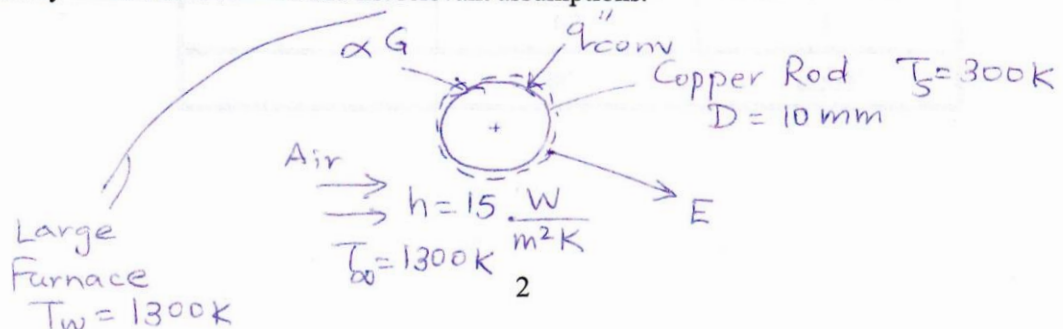 assumptions.
α G
q''conv
Copper Rod Ts = 300K
D = 10 mm
Air
h = 15 W/m²K
T∞ = 1300K
E
Large
Furnace
Tw = 1300K
2